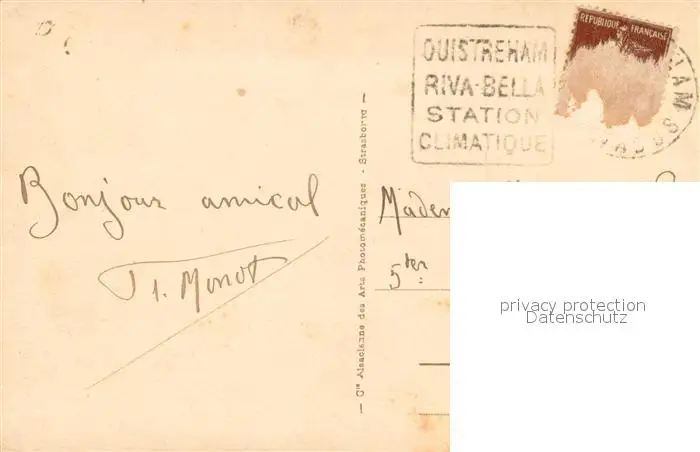 OUISTREHAM
RIVA-BELLA
STATION
CLIMATIQUE
REPUBLIQUE FRANÇAISE
Bonjour amical
Monot
— Cie Alsacienne des Arts Photomécaniques - Strasbourg —
5 ter
privacy protection
Datenschutz